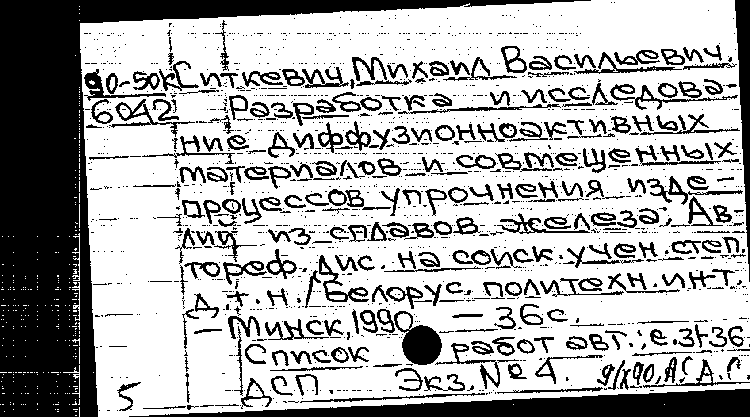 90-50к Ситкевич, Михаил Васильевич.
6042 Разработка и исследова-
ние диффузионноактивных
материалов и совмещенных
процессов упрочнения изде-
лий из сплавов железа: Ав-
тореф. дис. на соиск. учен. степ.
д.т.н. / Белорус. политехн. ин-т.
— Минск, 1990 — 36 с.
Список работ авт.: с. 31-36
5 ДСП. Экз. № 4. А.С.